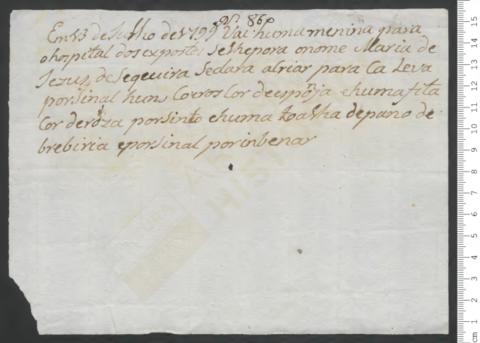 Nº. 869
Em 13 de Julho de 1799 Vai huma menina para
o hospital dos expostos se lhe pora o nome Maria de
Jezus, de Segueira Se dara a Criar para Ca Leva
por sinal huns Coeros Cor de esponja e huma fita
Cor de roza por sinto e huma toalha de pano de
brebiria e por sinal por inbenar